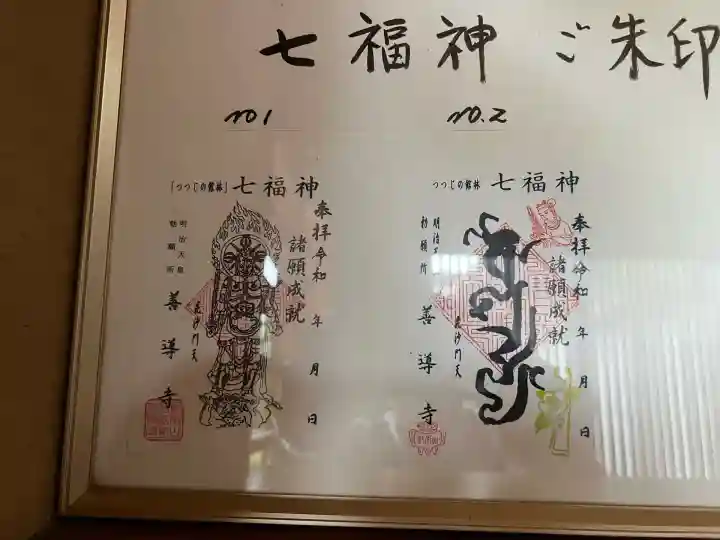 七福神 ご朱印
no1
no.2
「つつじの館林」七福神
奉拝 令和 年 月 日
諸願成就
毘沙門天
明治天皇
勅願所
善導寺
つつじの館林 七福神
奉拝 令和 年 月 日
諸願成就
毘沙門天
勅願所
善導寺